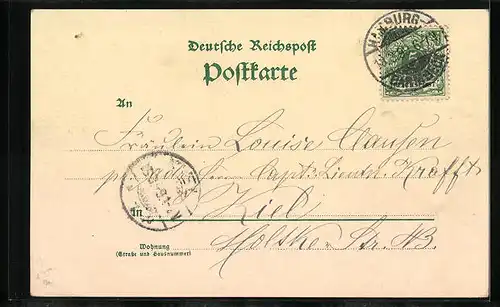 Deutsche Reichspost
Postkarte
HAMBURG
An
Fräulein Louise Clausen
pr. Adr. Capt. Lieutn. Krafft
in Kiel
Wohnung Moltke Str. 13.
(Straße und Hausnummer)